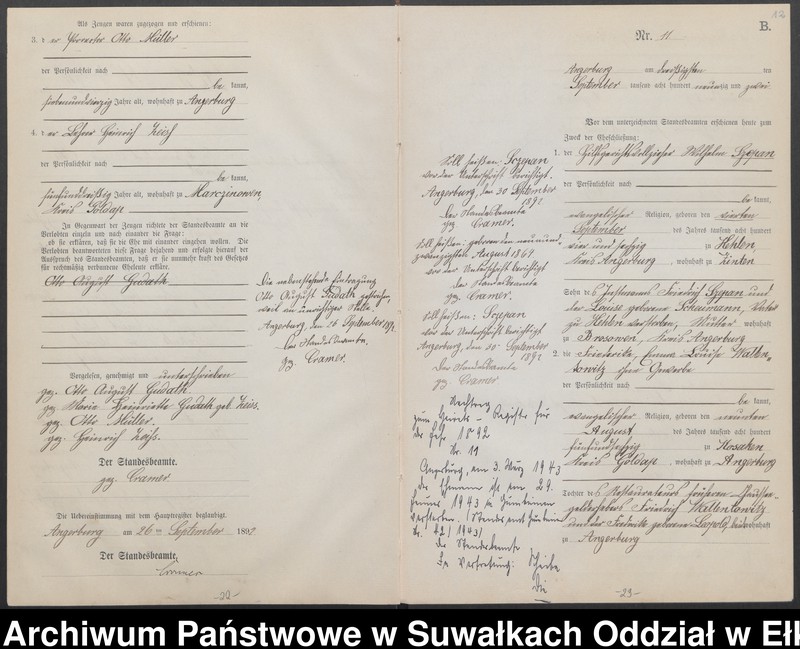 Als Zeugen waren zugezogen und erschienen:
3. der Otto Müller
der Persönlichkeit nach
be kannt,
siebenundvierzig Jahre alt, wohnhaft zu Angerburg
4. der Heinrich Zeisß
der Persönlichkeit nach
be kannt,
fünfunddreißig Jahre alt, wohnhaft zu Marczinowen,
Kreis Goldap
In Gegenwart der Zeugen richtete der Standesbeamte an die
Verlobten einzeln und nach einander die Frage:
ob sie erklären, daß sie die Ehe mit einander eingehen wollen. Die
Verlobten beantworteten diese Frage bejahend und erfolgte hierauf der
Ausspruch des Standesbeamten, daß er sie nunmehr kraft des Gesetzes
für rechtmäßig verbundene Eheleute erkläre.
Otto August Gudath
Die nebenstehende Eintragung
Otto August Gudath gestrichen,
weil an unrichtiger Stelle.
Angerburg, den 26 September 1892
Der Standesbeamte,
gz. Cramer.
Vorgelesen, genehmigt und unterschrieben
gez. Otto August Gudath.
gz. Marie Heinriette Gudath geb. Zeiss.
gz. Otto Müller.
gz. Heinrich Zeiss.
Der Standesbeamte.
gez. Cramer.
Die Uebereinstimmung mit dem Hauptregister beglaubigt.
Angerburg am 26ten September 1892
Der Standesbeamte,
Cramer
-22-
12
B.
Nr. 11
Angerburg am dreißigsten ten
September tausend acht hundert neunzig und zwei
Vor dem unterzeichneten Standesbeamten erschienen heute zum
Zweck der Eheschließung:
1. der Hilfsgerichtsvollzieher Wilhelm Szepan
der Persönlichkeit nach
be kannt,
evangelischer Religion, geboren den vierten
September des Jahres tausend acht hundert
vier und sechzig zu Kehlen
Kreis Angerburg, wohnhaft zu Zinten
Sohn des Instmanns Friedrich Szepan und
der Louise geborene Scheumann, Vater
zu Kehlen verstorben, Mutter wohnhaft
zu Brosowen, Kreis Angerburg
2. die Friederike, Emma Louise Wallen-
towitz ohne Gewerbe
der Persönlichkeit nach
be kannt,
evangelischer Religion, geboren den neunten
August des Jahres tausend acht hundert
fünfundsechzig zu Kosaken
Kreis Goldap, wohnhaft zu Angerburg
Tochter des Restaurateur früheren Chaussee-
gelderhebers Friedrich Wallentowitz
und der Friederike geborene Leopold, beide wohnhaft
zu Angerburg
Soll heißen: Sczepan
vor der Unterschrift berichtigt.
Angerburg, den 30 September
1892
Der Standesbeamte
gez. Cramer.
Soll heißen: geboren den neunund-
zwanzigsten August 1864
vor der Unterschrift berichtigt
der Standesbeamte
gz. Cramer.
Soll heißen: Sczepan
vor der Unterschrift berichtigt
Angerburg, den 30. September
1892
Der Standesbeamte
gz. Cramer
Nachtrag
zum Heirats-Register für
das Jahr 1892
Nr. 11
Angerburg, am 3. März 1943
der Ehemann ist am 29.
Januar 1943 in Gumbinnen
verstorben. (Standesamt Gumbinnen
Nr. 42/1943)
Der Standesbeamte
In Vertretung:
-23-
Archiwum Państwowe w Suwałkach Oddział w Ełk